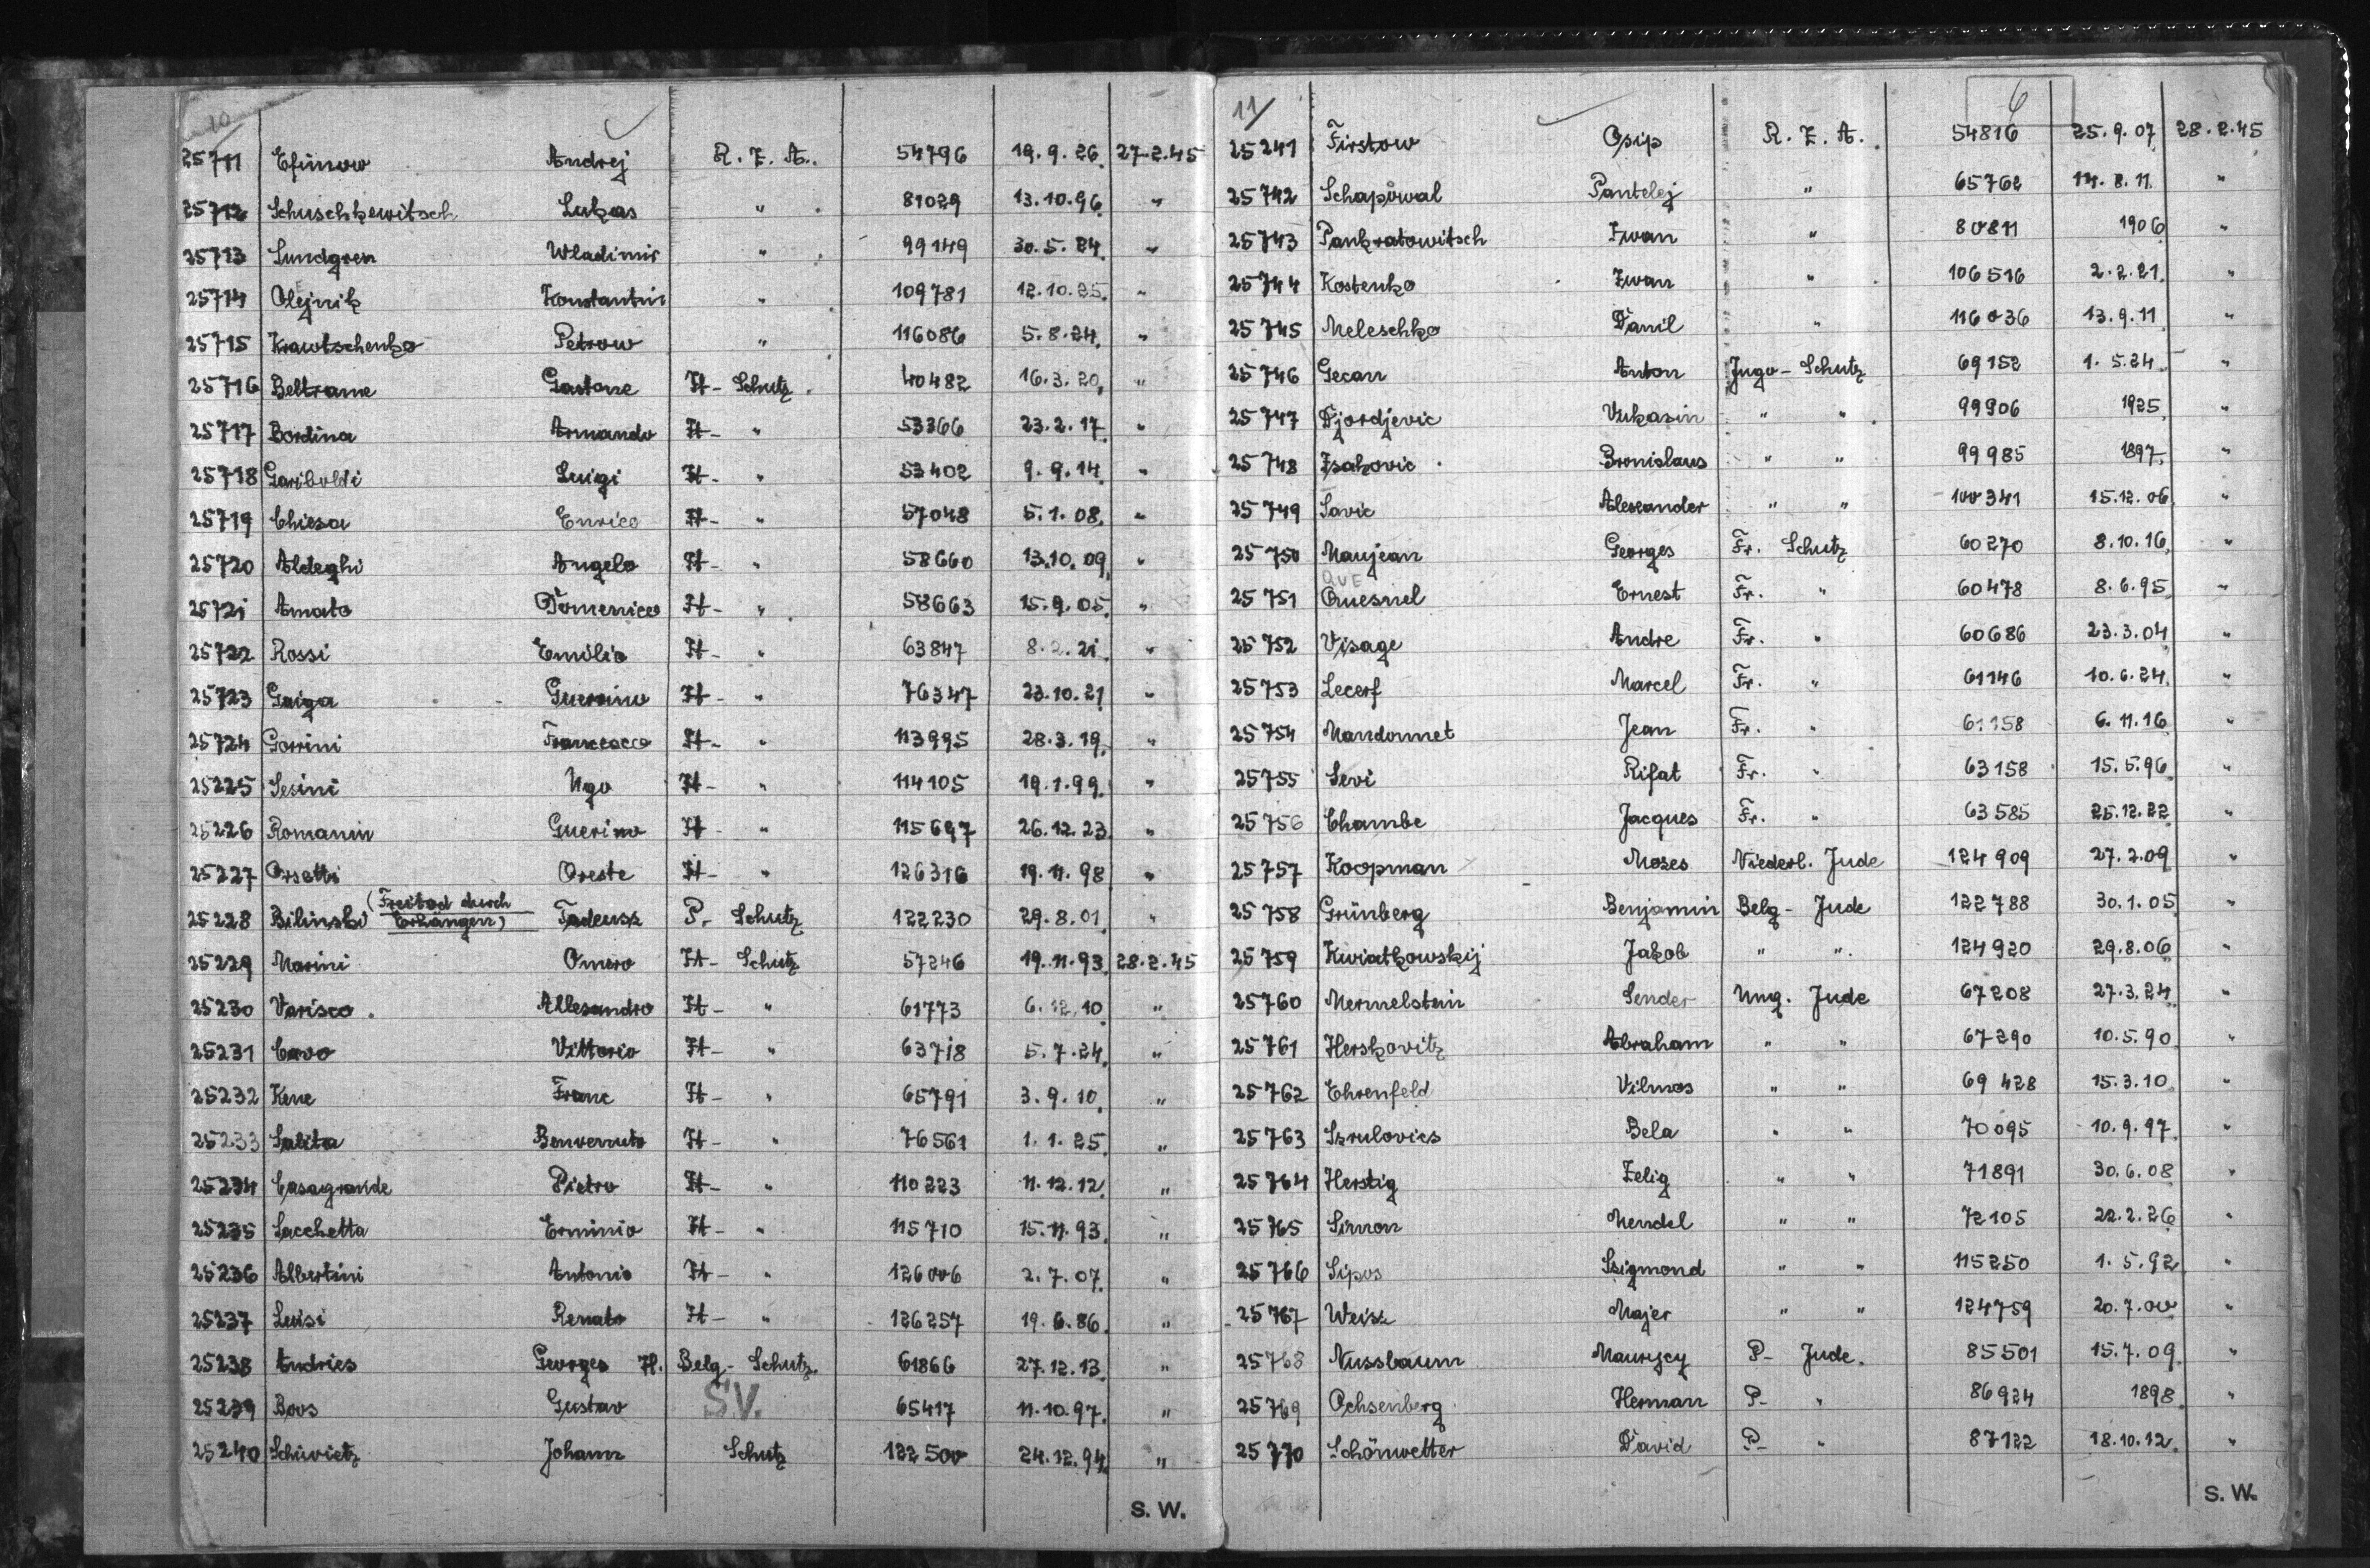 10
25711 Efimow Andrej R. Z. A. 54796 19.9.26. 27.2.45
25712 Schuschkewitsch Lukas " 81029 13.10.96. "
25713 Lundgren Wladimir " 99149 30.5.24. "
25714 Olejnik Konstantin " 109781 12.10.25. "
25715 Krawtschenko Petrow " 116086 5.8.24. "
25716 Beltrame Gastone It- Schutz 40482 16.3.20. "
25717 Bordina Armando It- " 53366 23.2.17. "
25718 Gariboldi Luigi It- " 53402 9.9.14. "
25719 Chiesa Enrico It- " 57048 5.1.08. "
25720 Aldeghi Angelo It- " 58660 13.10.09. "
25721 Amato Domenico It- " 58663 15.9.05. "
25722 Rossi Emilio It- " 63847 8.2.21. "
25723 Gaiga Guerrino It- " 76347 23.10.21 "
25724 Gorrini Francesco It- " 113995 28.3.19. "
25225 Sesini Ugo It- " 114105 19.1.99. "
25226 Romanin Guerino It- " 115697 26.12.23. "
25227 Orsetti Oreste It- " 126316 19.11.98 "
(Freitod durch
25228 Bilinski Erhängen) Tadeusz P. Schutz 122230 29.8.01. "
25229 Marini Omero It- Schutz 57246 19.11.93. 28.2.45
25230 Varisco Allesandro It- " 61773 6.12.10 "
25231 Cavo Vittorio It- " 63718 5.7.24. "
25232 Kene Franc It- " 65791 3.9.10. "
25233 Salita Benvenuto It- " 76561 1.1.25. "
25234 Casagrande Pietro It- " 110223 11.12.12. "
25235 Sacchetta Erminio It- " 115710 15.11.93. "
25236 Albertini Antonio It- " 126006 2.7.07. "
25237 Luisi Renato It- " 126257 19.6.86. "
25238 Andries Georges H. Belg- Schutz. 61866 27.12.13. "
25239 Boos Gustav S.V. 65417 11.10.97. "
25240 Schivietz Johann Schutz 122500 24.12.94. "
S. W.
11 6
25241 Firstow Osip R. Z. A. 54816 25.9.07. 28.2.45
25742 Schapowal Pantelej " 65762 14.8.11. "
25743 Pankratowitsch Iwan " 80811 1906 "
25744 Kostenko Iwan " 106516 2.2.21. "
25745 Meleschko Danil " 116036 13.9.11 "
25746 Gecan Anton Jugo- Schutz 69152 1.5.24. "
25747 Djordjevic Vukasin " " 99906 1925 "
25748 Isakovic Bronislaus " " 99985 1897. "
25749 Savic Alexander " " 100341 15.12.06 "
25750 Maujean Georges Fr. Schutz 60270 8.10.16. "
QUE
25751 Quesnel Ernest Fr. " 60478 8.6.95. "
25752 Visage Andre Fr. " 60686 23.3.04 "
25753 Lecerf Marcel Fr. " 61146 10.6.24. "
25754 Mandonnet Jean Fr. " 61158 6.11.16 "
25755 Levi Rifat Fr. " 63158 15.5.96 "
25756 Chambe Jacques Fr. " 63585 25.12.22 "
25757 Koopman Moses Niederl. Jude 124909 27.2.09 "
25758 Grünberg Benjamin Belg- Jude 122788 30.1.05 "
25759 Kwiatkowskij Jakob " " 124920 29.8.06 "
25760 Mermelstein Sender Ung. Jude 67208 27.3.24 "
25761 Herskovitz Abraham " " 67290 10.5.90 "
25762 Ehrenfeld Vilmos " " 69428 15.3.10. "
25763 Szrulovics Bela " " 70095 10.9.97. "
25764 Herstig Zelig " " 71891 30.6.08 "
25765 Simon Mendel " " 72105 22.2.26 "
25766 Sipos Szigmond " " 115250 1.5.92 "
25767 Weisz Majer " " 124759 20.7.00 "
25768 Nussbaum Maurycy P- Jude. 85501 15.7.09. "
25769 Ochsenberg Herman P- " 86924 1898. "
25770 Schönwetter David P- " 87122 18.10.12. "
S. W.